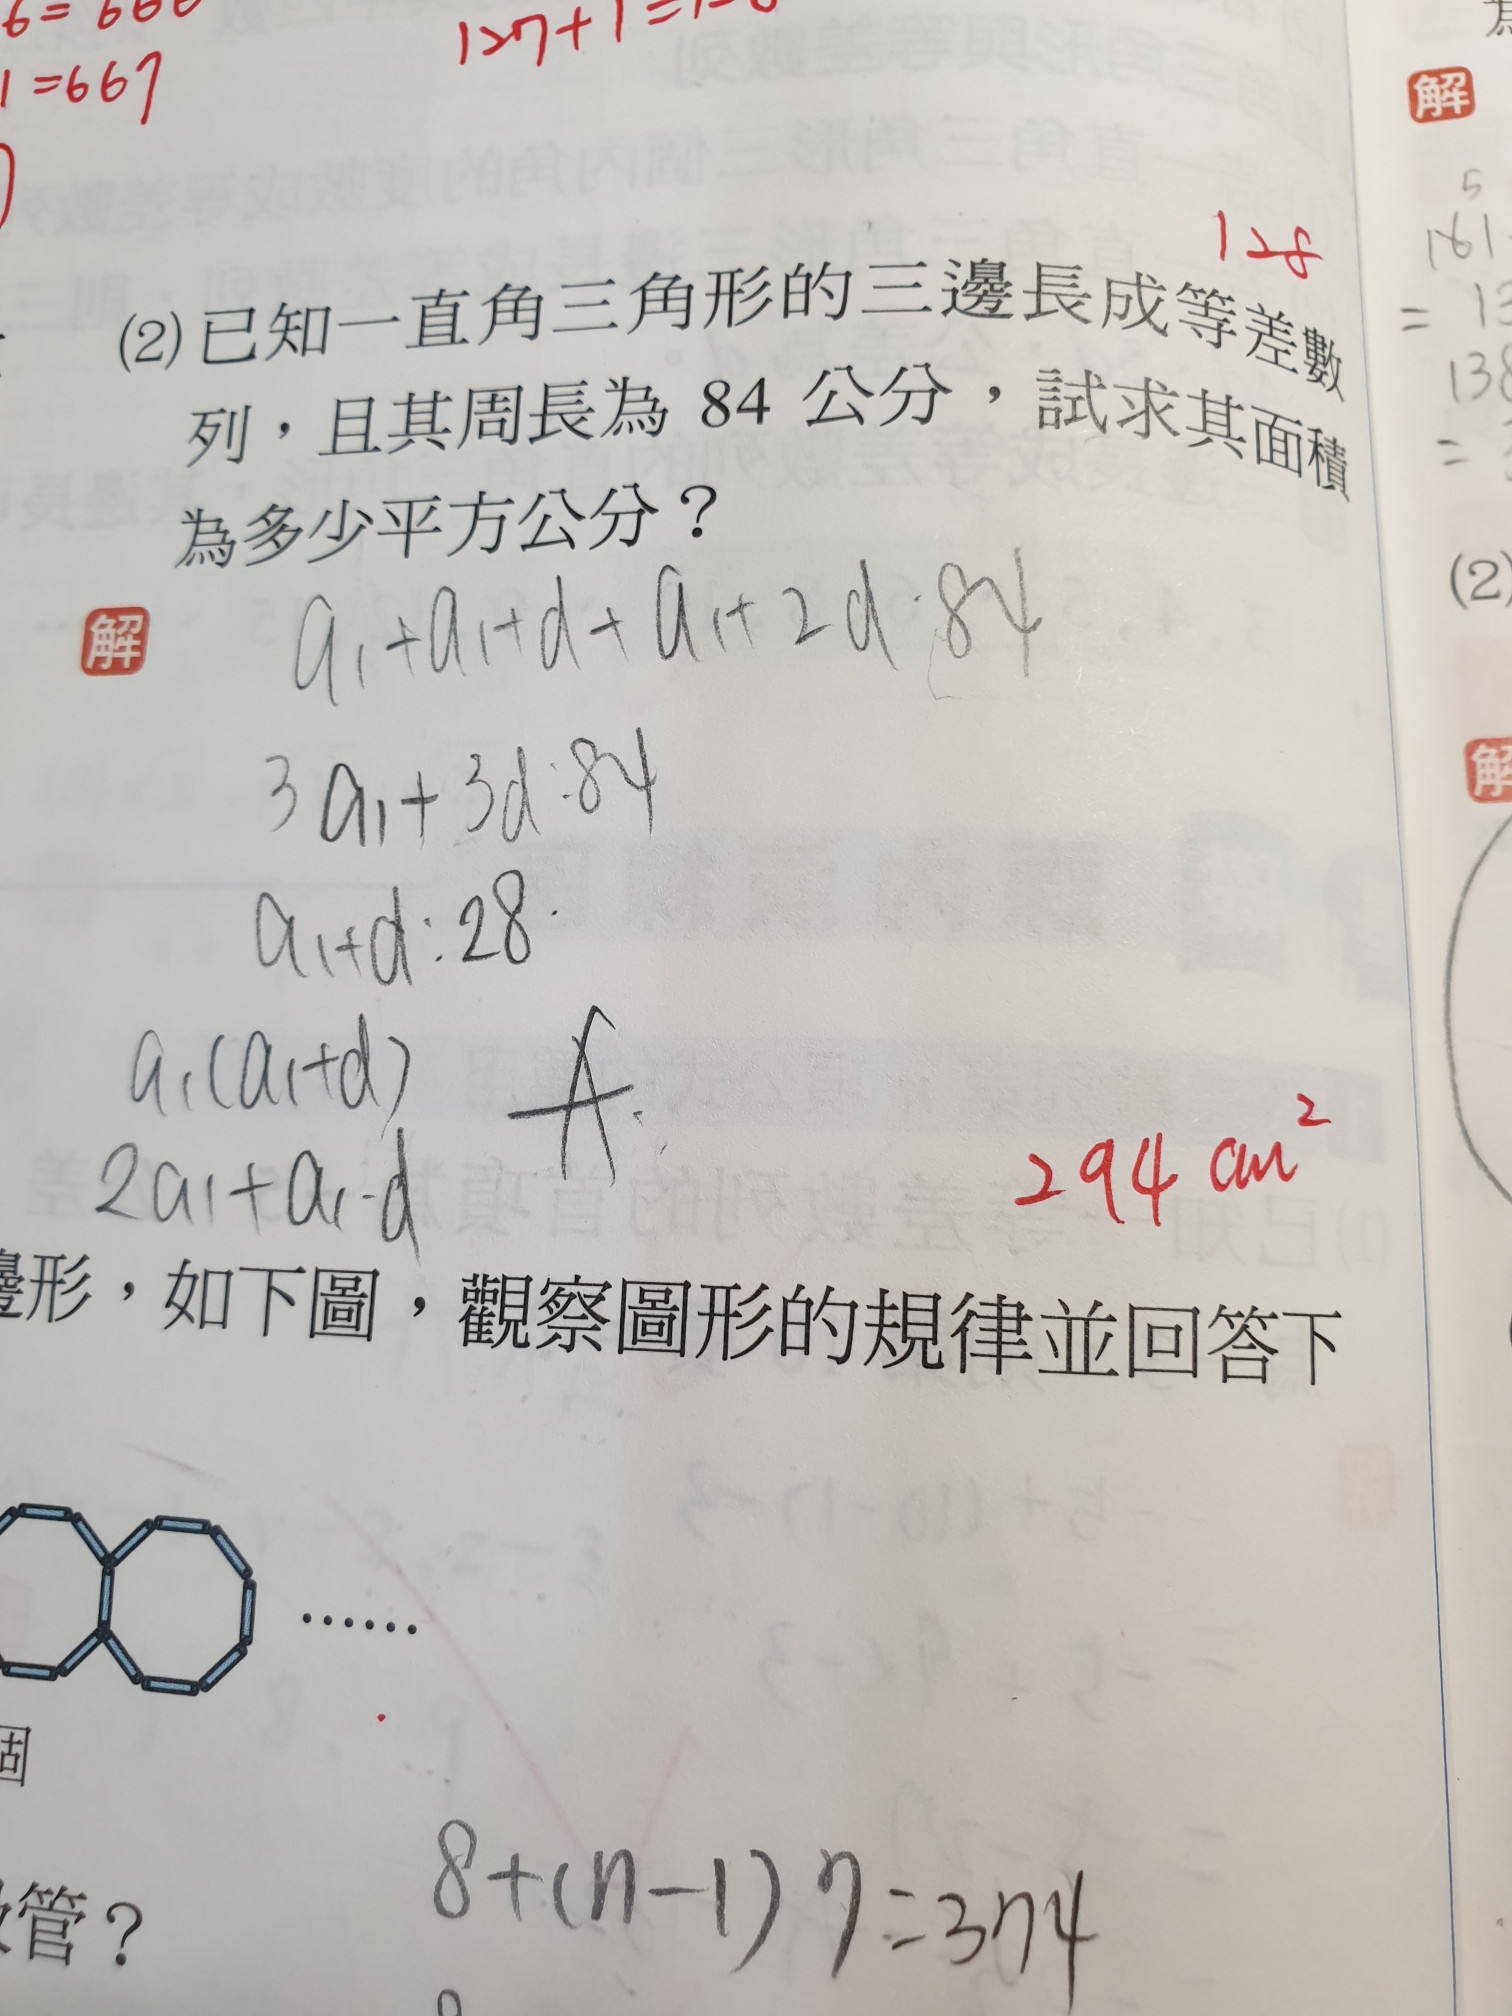 1=667
127+1=
解
128
(2)已知一直角三角形的三邊長成等差數
列，且其周長為 84 公分，試求其面積
為多少平方公分？
(2)
解
a₁+a₁+d+a₁+2d:84
3a₁+3d:84
a₁+d:28
a₁(a₁+d)
A
2a₁+a₁·d
294 cm²
邊形，如下圖，觀察圖形的規律並回答下
……
個
管？
8+(n-1)7=374